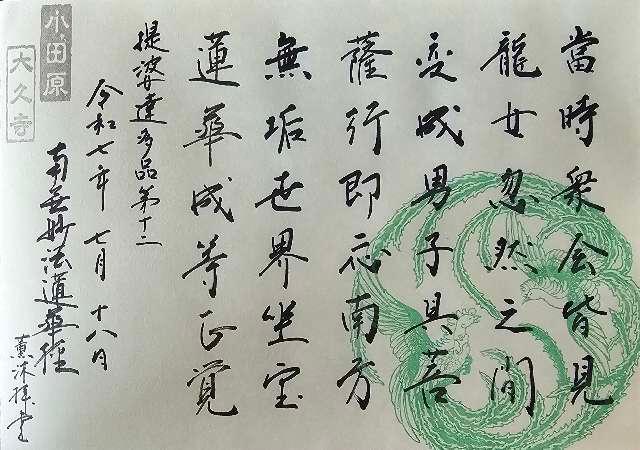 當時衆会皆見
龍女忽然之間
変成男子具菩
薩行即往南方
無垢世界坐宝
蓮華成等正覚
提婆達多品第十二
令和七年七月十八日
南無妙法蓮華経
薫沐拝書
小田原
大久寺